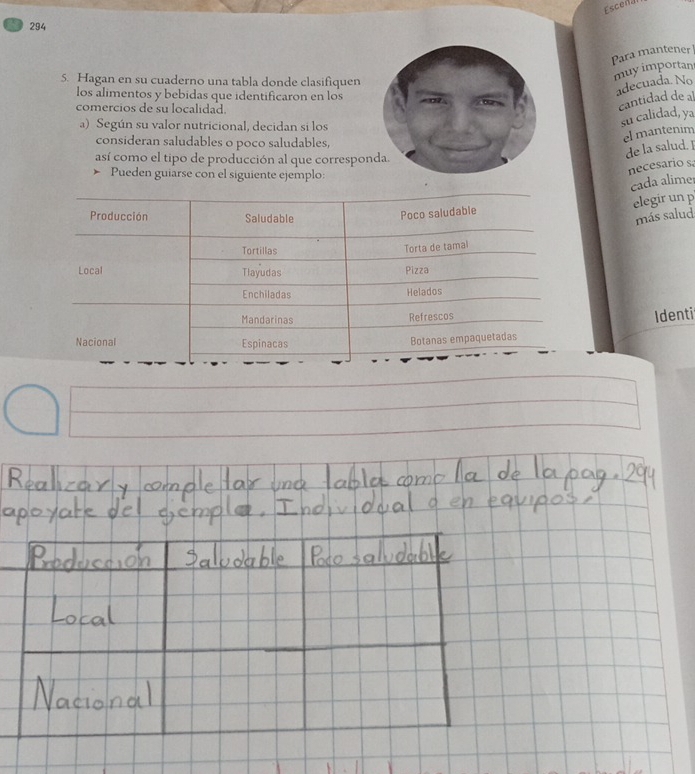 294
5. Hagan en su cuaderno una tabla donde clasifiquen
los alimentos y bebidas que identificaron en los
comercios de su localidad.
a) Según su valor nutricional, decidan si los
consideran saludables o poco saludables,
así como el tipo de producción al que corresponda.
➤ Pueden guiarse con el siguiente ejemplo:
Producción Saludable Poco saludable
Tortillas Torta de tamal
Local Tlayudas Pizza
Enchiladas Helados
Mandarinas Refrescos
Nacional Espinacas Botanas empaquetadas
Para mantener
muy importan
adecuada. No
cantidad de al
su calidad, ya
el mantenim
de la salud.
necesario s
cada alime
elegir un p
más salud
Identi
Realizar y completar una tabla como la de la pag. 294
apoyate del ejemplo. Individual o en equipos.
Producción Saludable Poco saludable
Local
Nacional